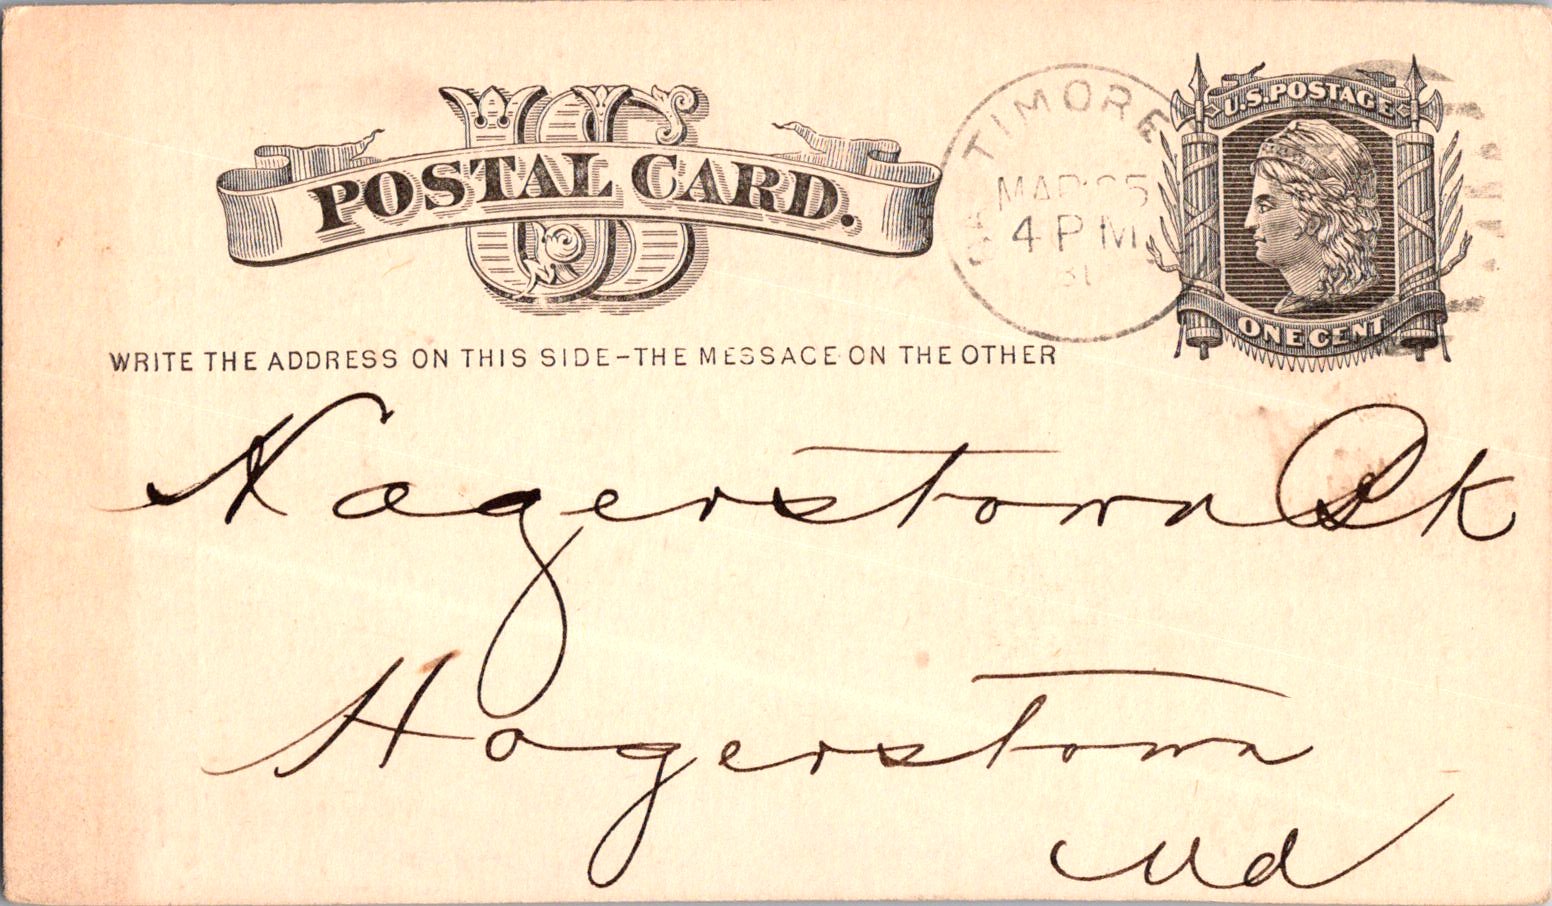 US
POSTAL CARD.
U.S. POSTAGE
ONE CENT
TIMORE
4 PM
WRITE THE ADDRESS ON THIS SIDE-THE MESSAGE ON THE OTHER
Hagerstown Bk
Hagerstown
Md